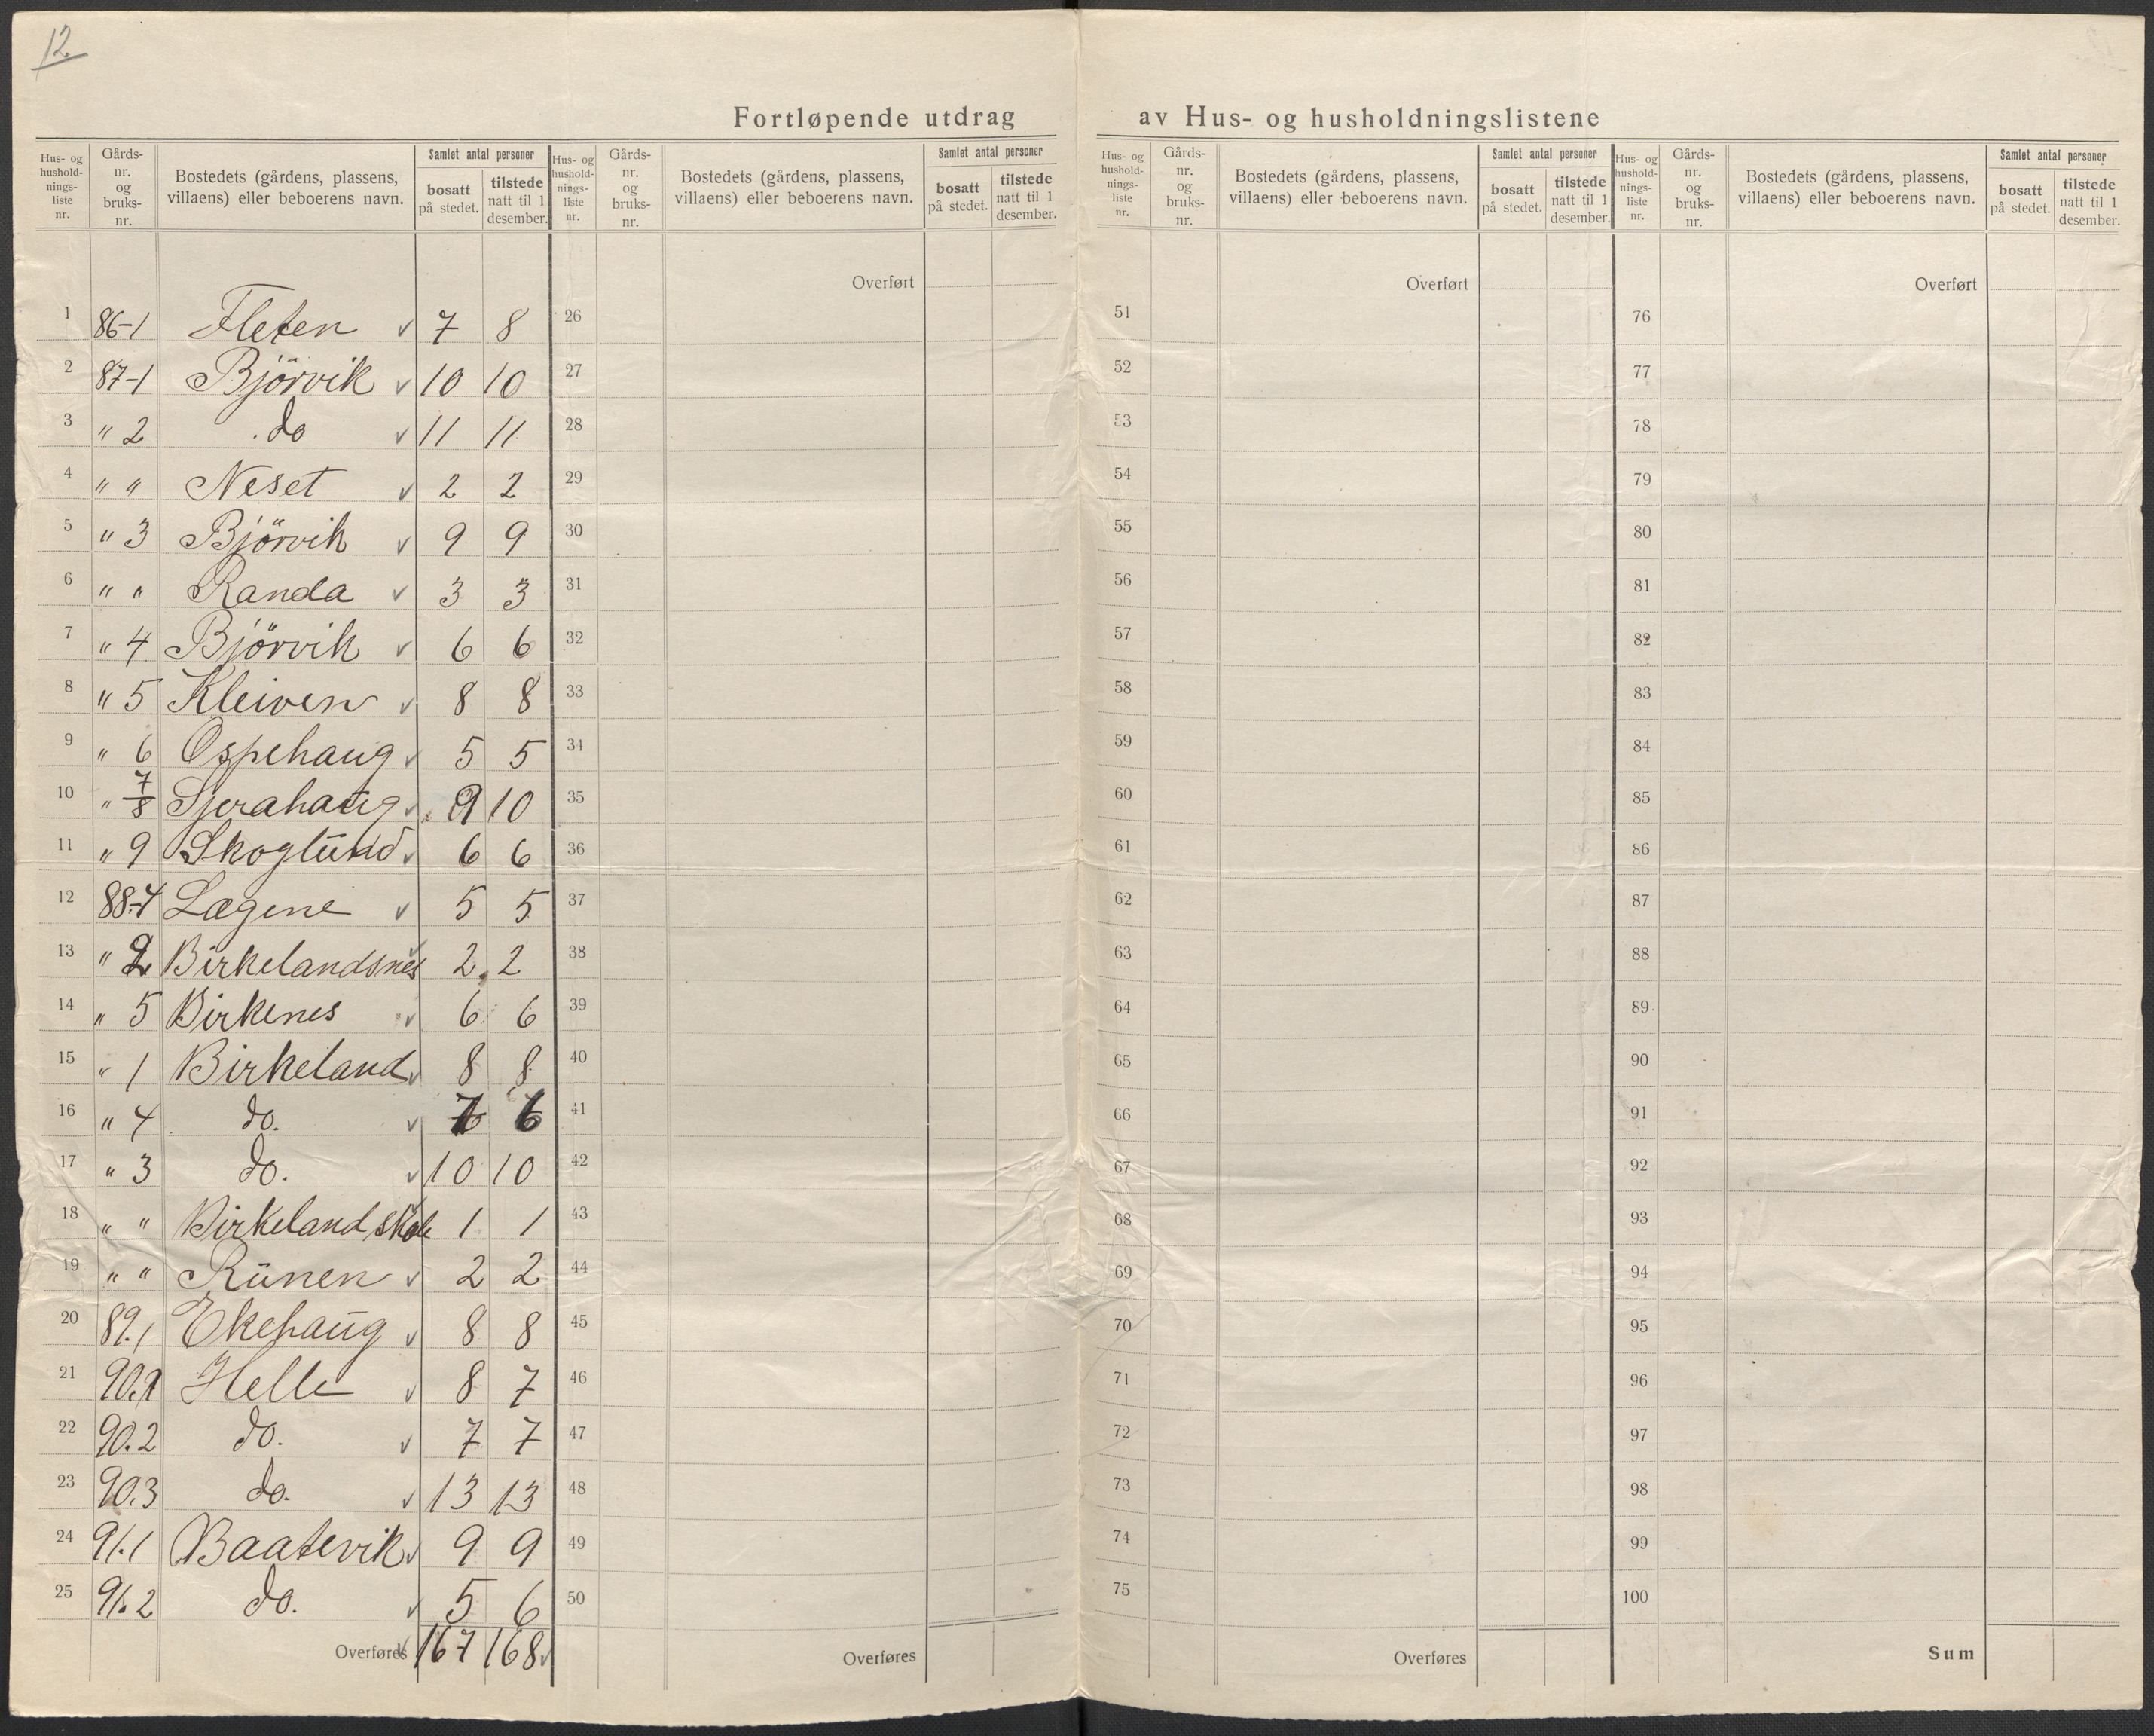 12
Fortløpende utdrag av Hus- og husholdningslistene
Hus- og husholdnings-liste nr. Gårds-nr. og bruks-nr. Bostedets (gårdens, plassens, villaens) eller beboerens navn. Samlet antal personer bosatt på stedet. tilstede natt til 1 desember.
Hus- og husholdnings-liste nr. Gårds-nr. og bruks-nr. Bostedets (gårdens, plassens, villaens) eller beboerens navn. Samlet antal personer bosatt på stedet. tilstede natt til 1 desember.
Hus- og husholdnings-liste nr. Gårds-nr. og bruks-nr. Bostedets (gårdens, plassens, villaens) eller beboerens navn. Samlet antal personer bosatt på stedet. tilstede natt til 1 desember.
Hus- og husholdnings-liste nr. Gårds-nr. og bruks-nr. Bostedets (gårdens, plassens, villaens) eller beboerens navn. Samlet antal personer bosatt på stedet. tilstede natt til 1 desember.
Overført Overført Overført
1 86-1 Fleten v 7 8 26 51 76
2 87-1 Björvik v 10 10 27 52 77
3 " 2 do v 11 11 28 53 78
4 " " Neset v 2 2 29 54 79
5 " 3 Björvik v 9 9 30 55 80
6 " " Randa v 3 3 31 56 81
7 " 4 Björvik v 6 6 32 57 82
8 " 5 Kleiven v 8 8 33 58 83
9 " 6 Ospehaug v 5 5 34 59 84
10 " 7/8 v 9 10 35 60 85
11 " 9 Skoglund v 6 6 36 61 86
12 88-4 Lægene v 5 5 37 62 87
13 " 2 Birkelandsnes v 2 2 38 63 88
14 " 5 Birkenes v 6 6 39 64 89
15 " 1 Birkeland v 8 8 40 65 90
16 " 4 do. v 7 6 41 66 91
17 " 3 do. v 10 10 42 67 92
18 " " Birkeland skole 1 1 43 68 93
19 " " Runen v 2 2 44 69 94
20 89.1 Ekehaug v 8 8 45 70 95
21 90.1 Helle v 8 7 46 71 96
22 90.2 do. v 7 7 47 72 97
23 90.3 do. v 13 13 48 73 98
24 91.1 Baatevik v 9 9 49 74 99
25 91.2 do. v 5 6 50 75 100
Overføres v 167 168 v Overføres Overføres Sum